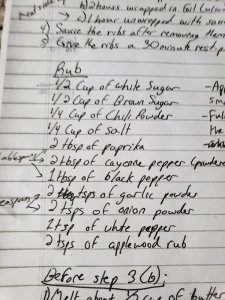 2 hours wrapped in foil
1 hour unwrapped with sau
4) Sauce the ribs after removing
5) Give the ribs a 30 minute rest p
Rub
1/2 Cup of white Sugar
1/2 Cup of Brown Sugar
1/4 Cup of Chili Powder
1/4 Cup of Salt
2 tbsp of paprika
2 tbsp of cayenne pepper (powder
1 tbsp of black pepper
2 tsps of garlic powder
2 tsps of onion powder
1 tsp of white pepper
2 tsps of applewood rub
Before step 3(b):
1) Melt about 1/2 cup of butter